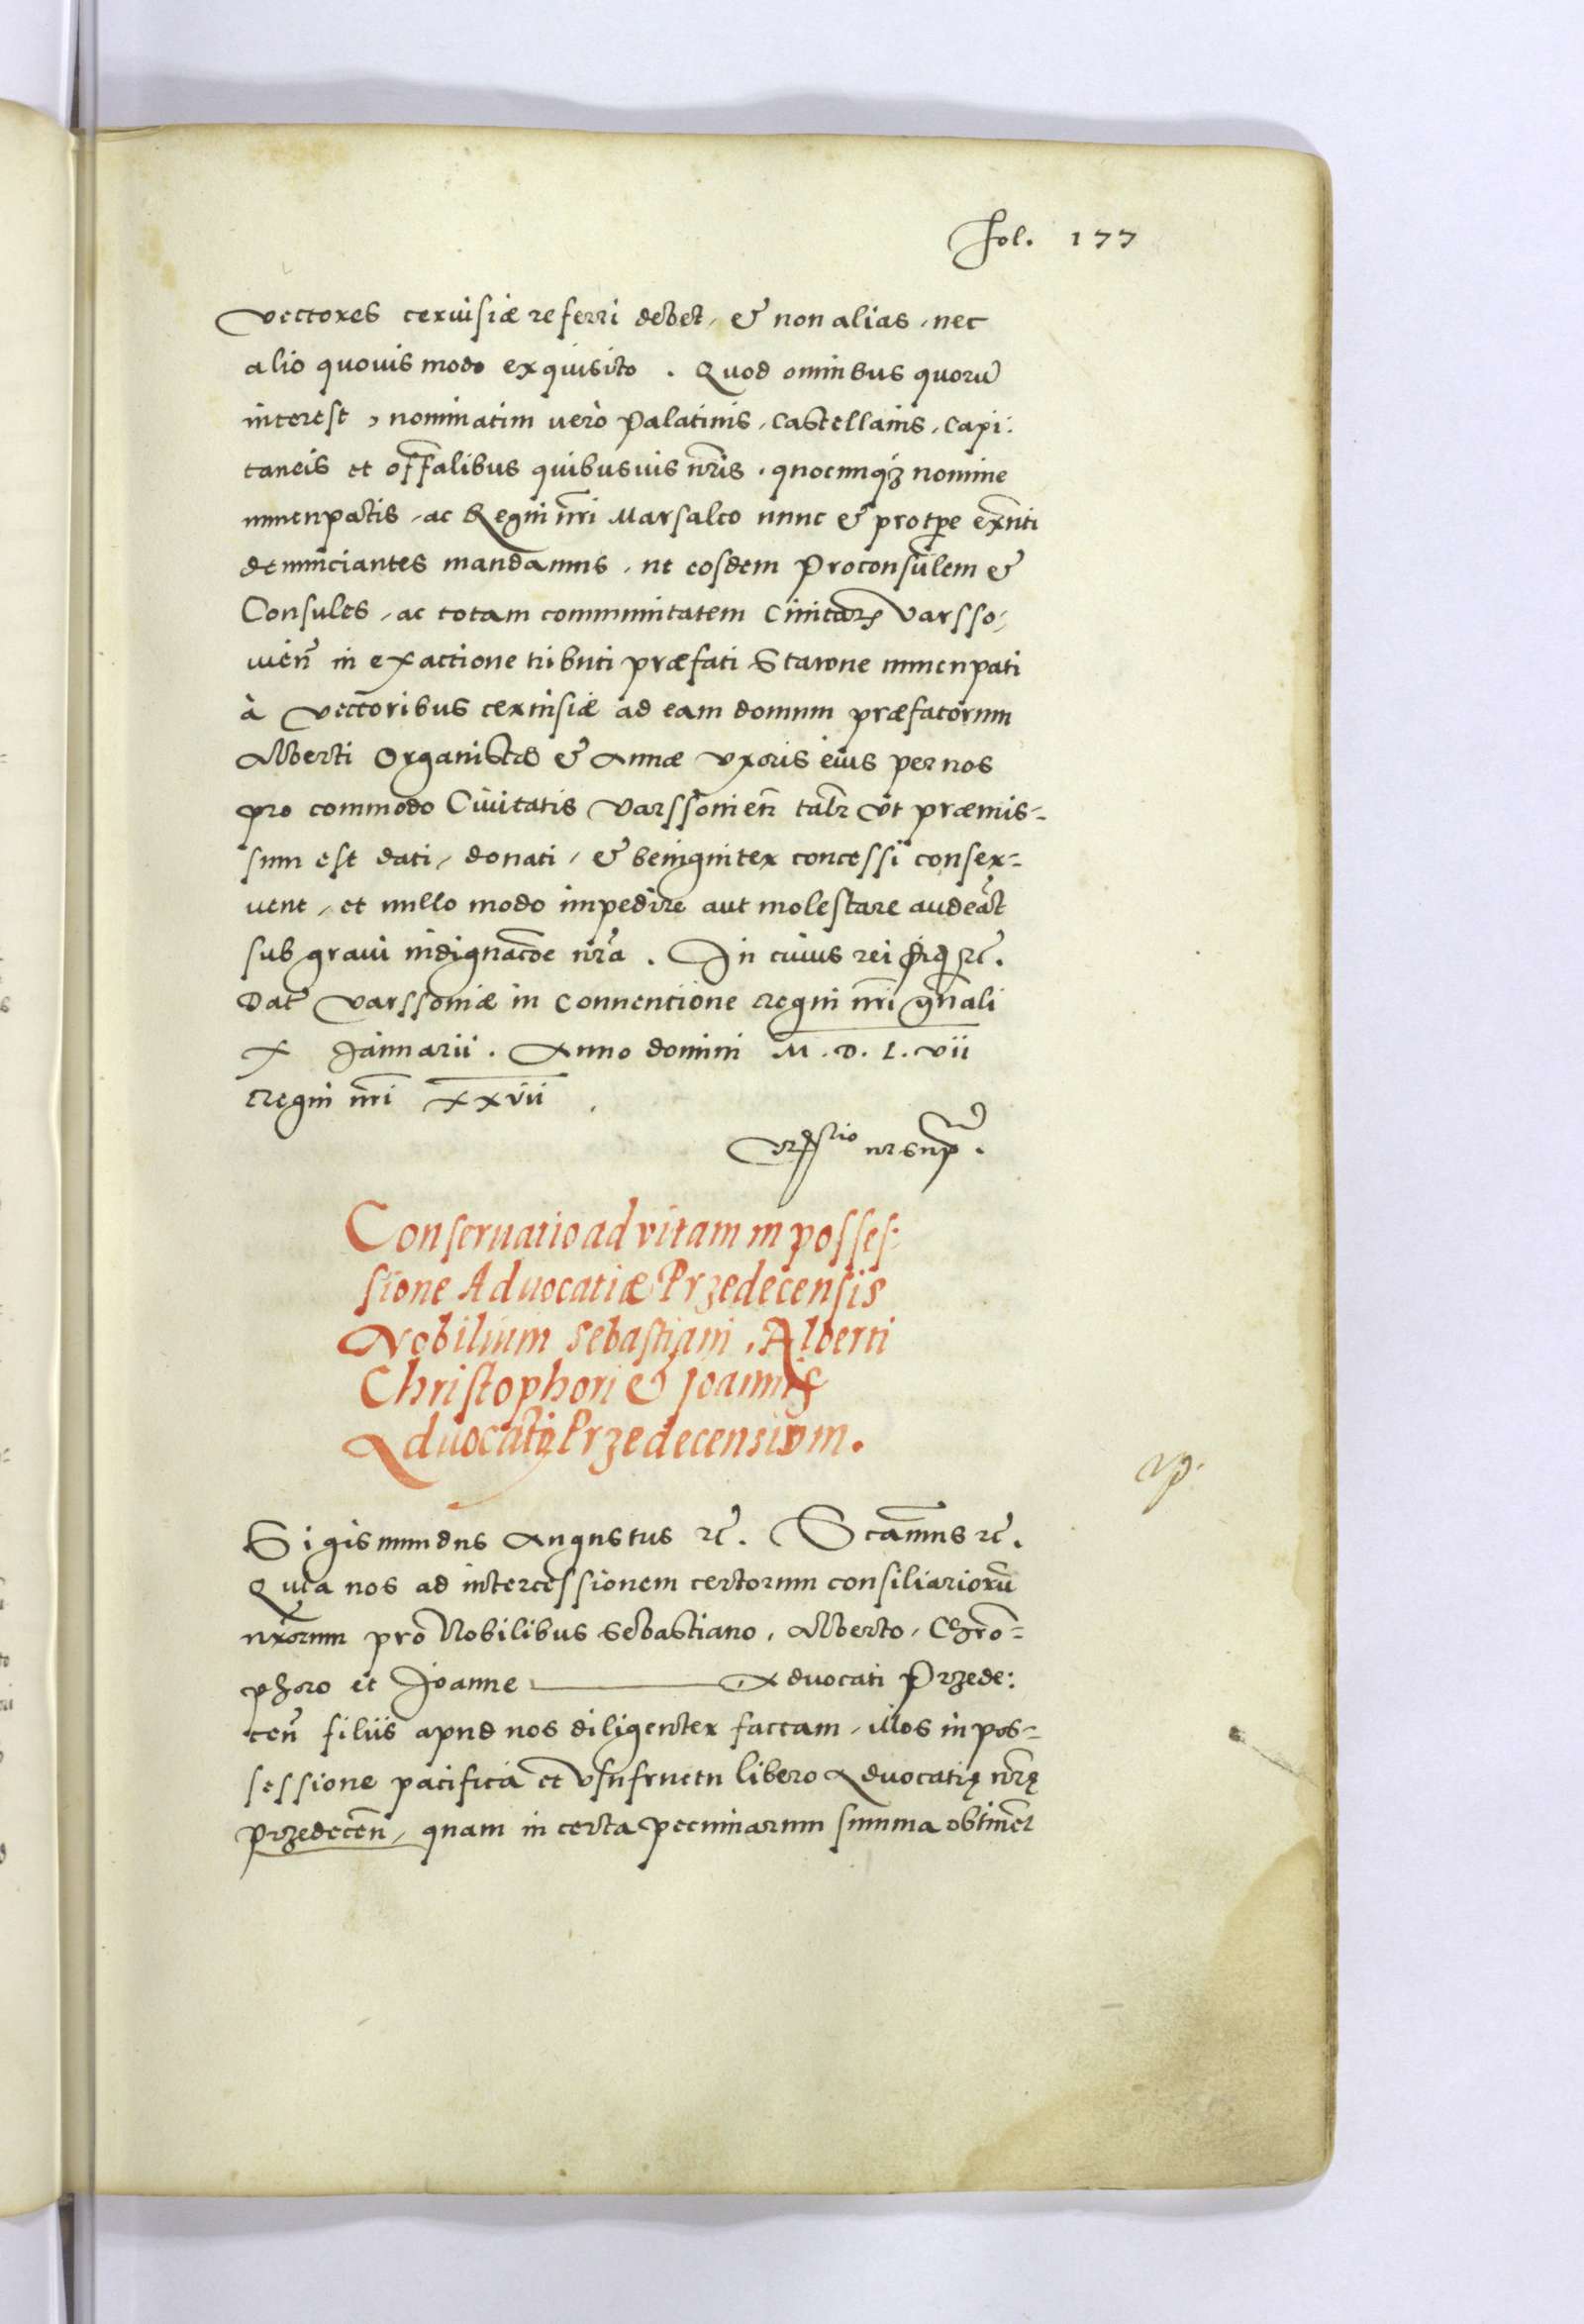 fol. 177
vectores ceruisiæ referri debet, & non alias, nec
alio quouis modo exquisito. Quod omnibus quorū
interest, nominatim uerò Palatinis, Castellanis, Capi:
taneis et offalibus quibusuis nr̃is, quocunq₃ nomine
nuncupatis, ac Regni nr̃i Marsalco nunc & pro tp̃e exn̄ti
denunciantes mandamus, ut eosdem Proconsulem &
Consules, ac totam communitatem Ciuitatis Varsso-
uien̄ in exactione tributi præfati Starone nuncupati
à Vectoribus ceruisiæ ad eam domum præfatorum
Alberti Organistæ & Annæ Vxoris eius per nos
pro commodo Ciuitatis Varssouien̄ talr̃ Vt præmis-
sum est dati, donati, & benigniter concessi conser-
uent, et nullo modo impedire aut molestare audeāt
sub graui indignacōe nr̃a. In cuius rei fid ꝛc̃.
Dat̃ Varssouiæ in Conuentione Regni nr̃i gn̄ali
X Januarii. Anno domini M.D.L.vii
Regni nr̃i XXVII
ut sup̃.
Conseruatio ad vitam in posses:
sione Aduocatiæ Przedecensis
Nobilium Sebastiani, Alberti
Christophori & Joannis
Aduocatorum Przedecensium.
Sigismundus Augustus ꝛc̃. Scamus ꝛc̃.
Quia nos ad intercessionem certorum consiliariorū
nr̃orum pro Nobilibus Sebastiano, Alberto, Chr̃o-
phoro et Joanne Aduocati Przede:
cen̄ filiis apud nos diligenter factam, illos in pos-
sessione pacifica et vsufructu libero Aduocatię nr̃ę
Przedecen̄, quam in certa pecuniarum summa obtinēt